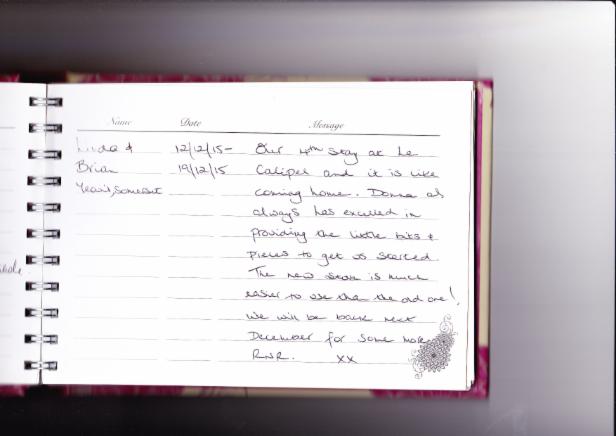 Name Date Message
Linda & 12/12/15- Our 4th Stay at Le
Brian 19/12/15 Calipel and it is like
Yeovil, Somerset coming home. Donna as
always has excelled in
providing the little bits &
pieces to get us started.
The new stove is much
easier to use than the old one!
We will be back next
December for some more
RNR. xx